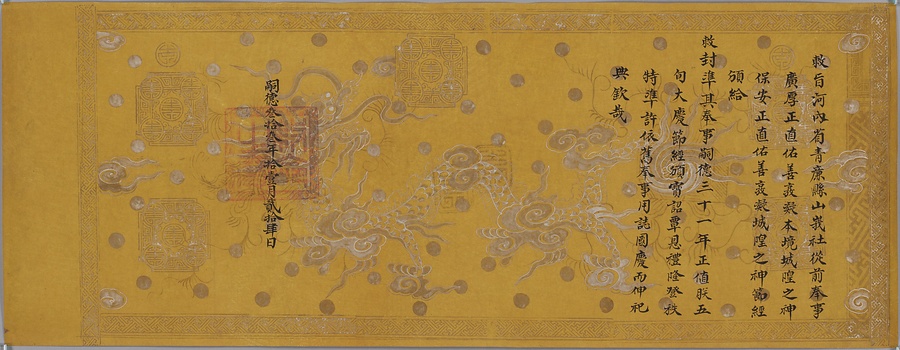 敕旨河內省青廉縣山峩社從前奉事
廣厚正直佑善敦凝本境城隍之神
保安正直佑善敦凝城隍之神節經
頒給
敕封準其奉事嗣德三十一年正值朕五
旬大慶節經頒寶詔覃恩禮隆登秩
特準許依舊奉事用誌國慶而伸祀
典欽哉
嗣德叁拾叁年拾壹月貳拾肆日